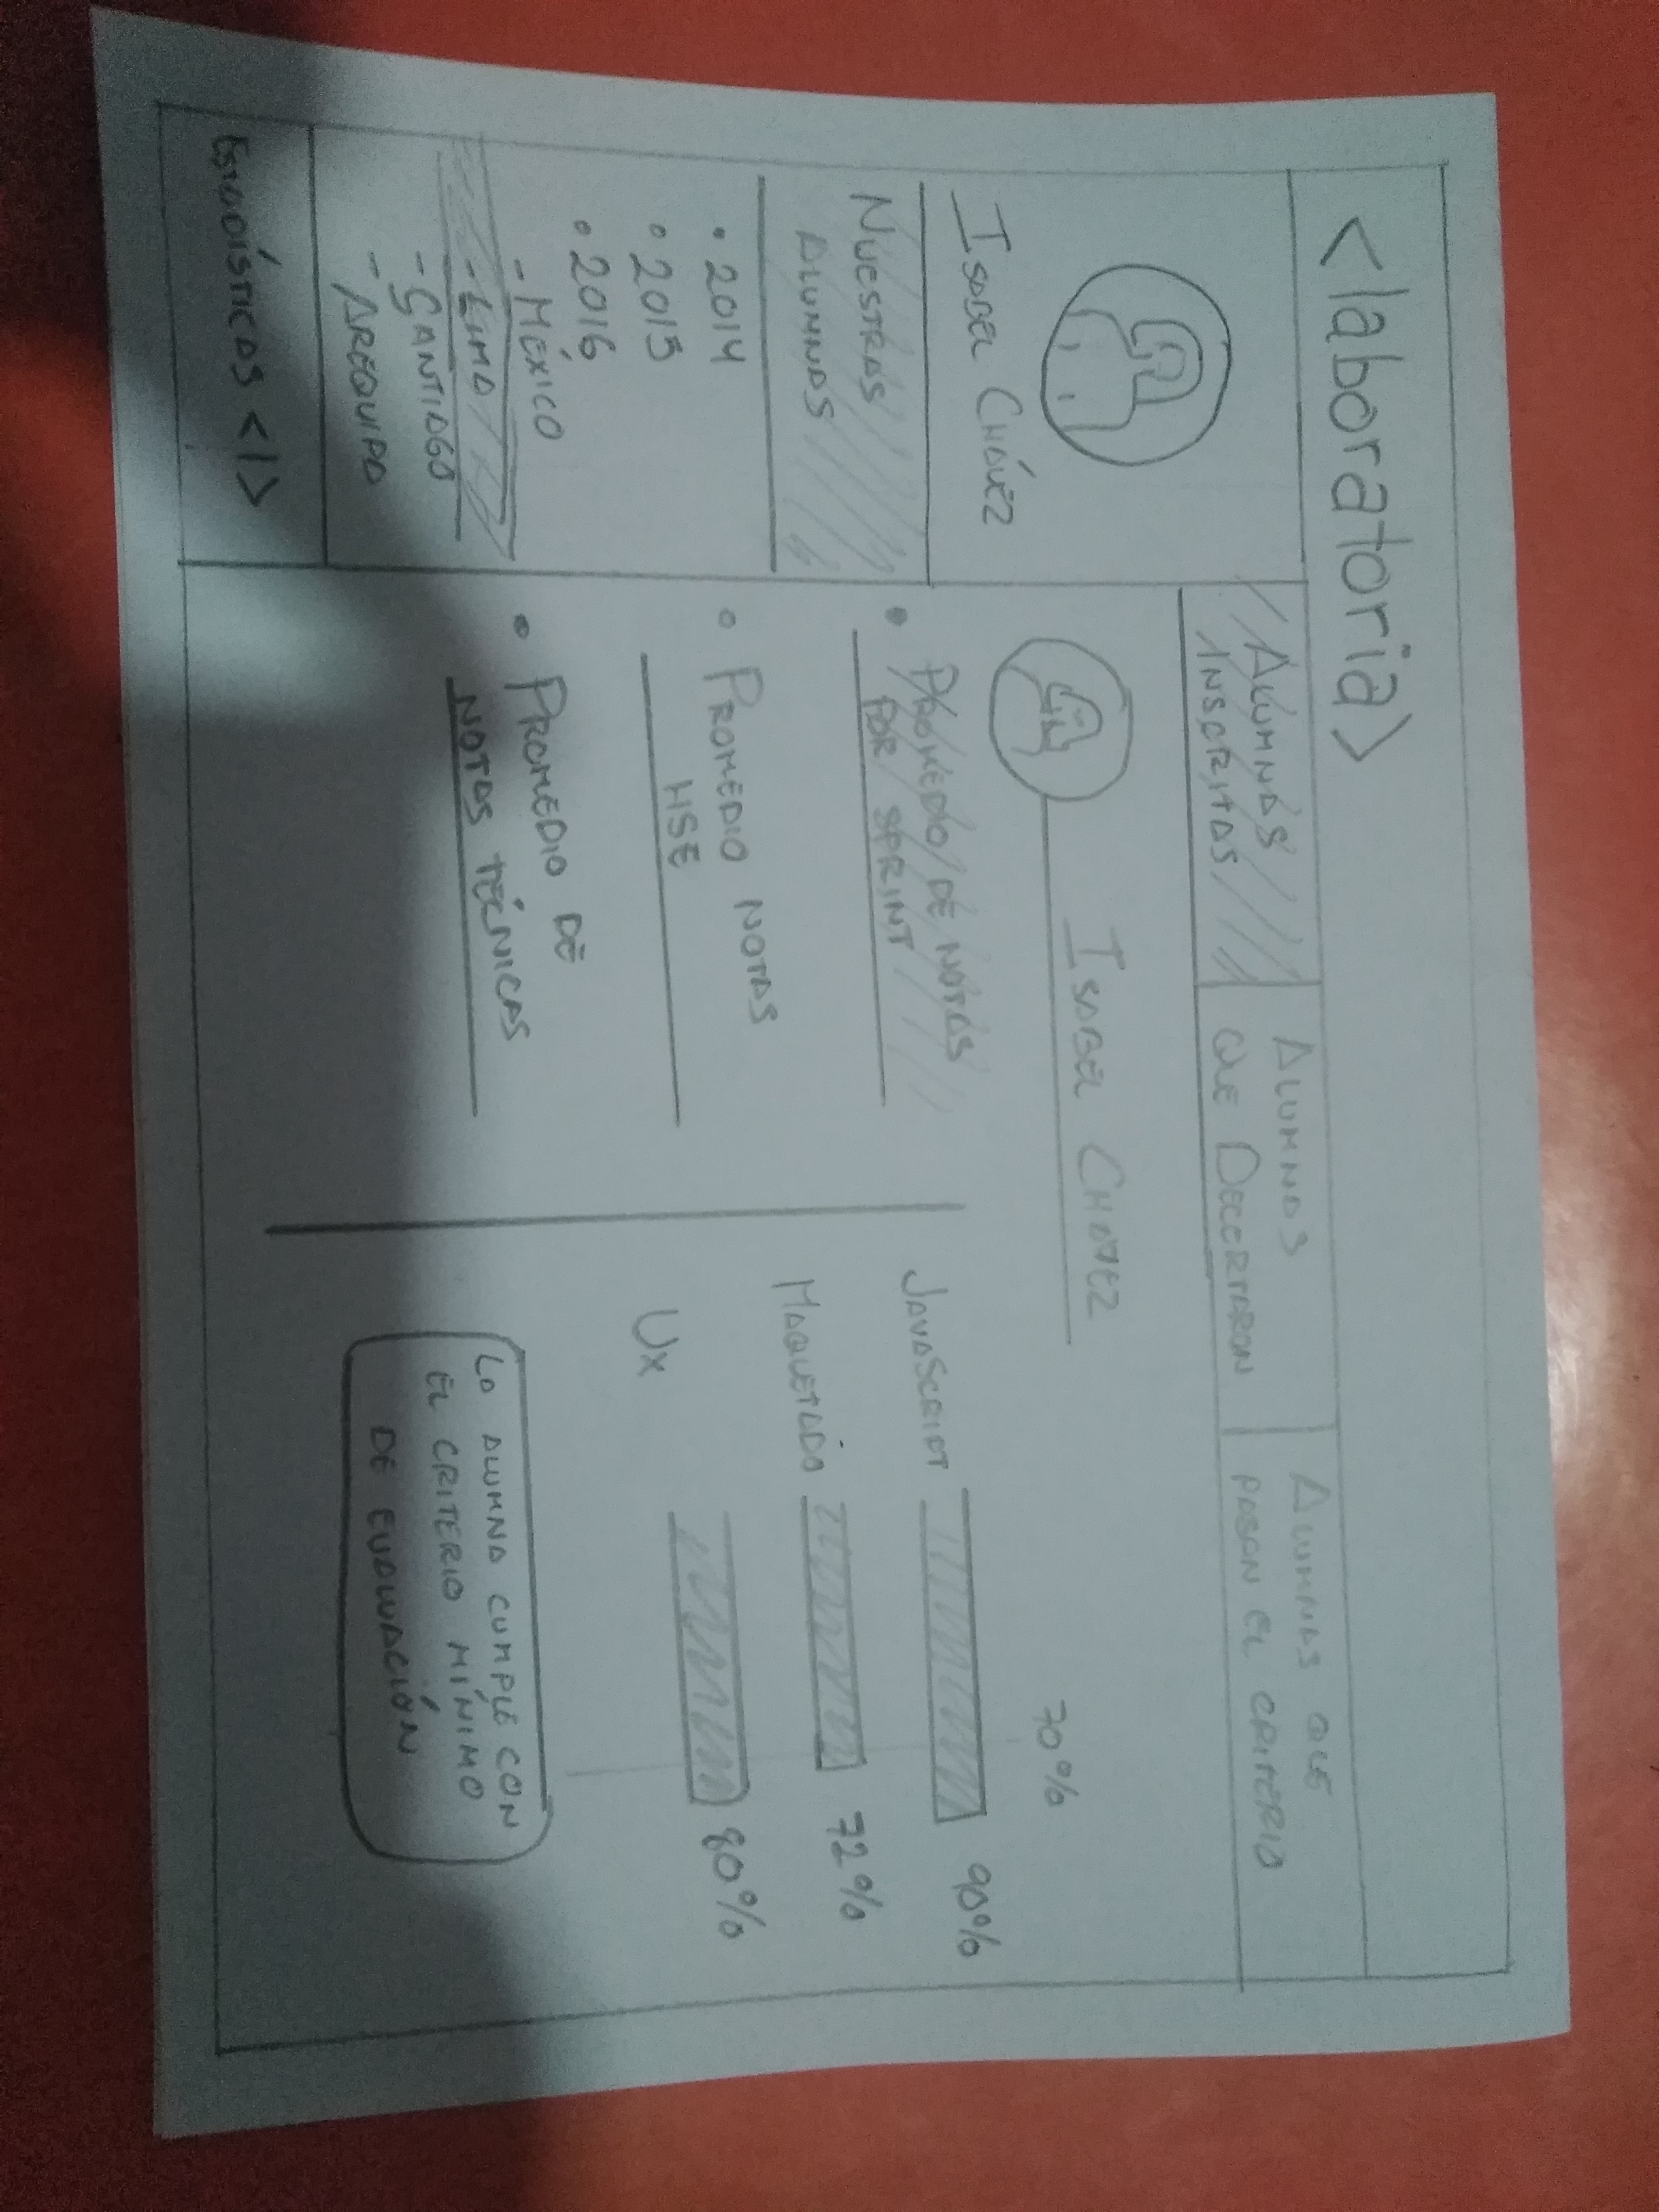 <laboratoria>
ALUMNAS
INSCRITAS
ALUMNAS
QUE DECERTARON
ALUMNAS QUE
PASAN EL CRITERIO
ISABEL CHÁVEZ
NUESTRAS
ALUMNAS
• 2014
• 2015
• 2016
- MÉXICO
- LIMA
- SANTIAGO
- AREQUIPA
ESTADÍSTICAS </>
ISABEL CHAVEZ
• PROMEDIO DE NOTAS
POR SPRINT
• PROMEDIO NOTAS
HSE
• PROMEDIO DE
NOTAS TÉCNICAS
70%
JAVASCRIPT 90%
MAQUETADO 72%
UX 80%
LA ALUMNA CUMPLE CON
EL CRITERIO MÍNIMO
DE EVALUACIÓN